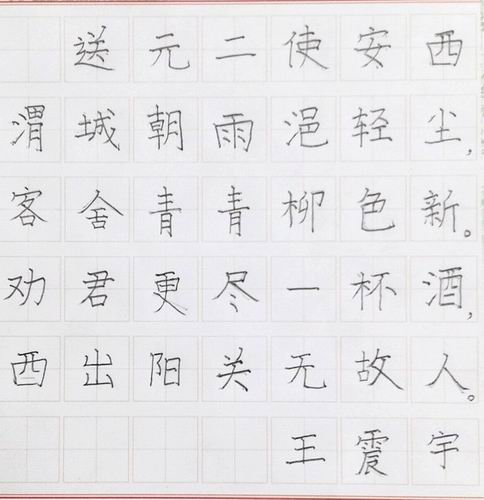 送元二使安西
渭城朝雨浥轻尘,
客舍青青柳色新。
劝君更尽一杯酒,
西出阳关无故人。
王震宇